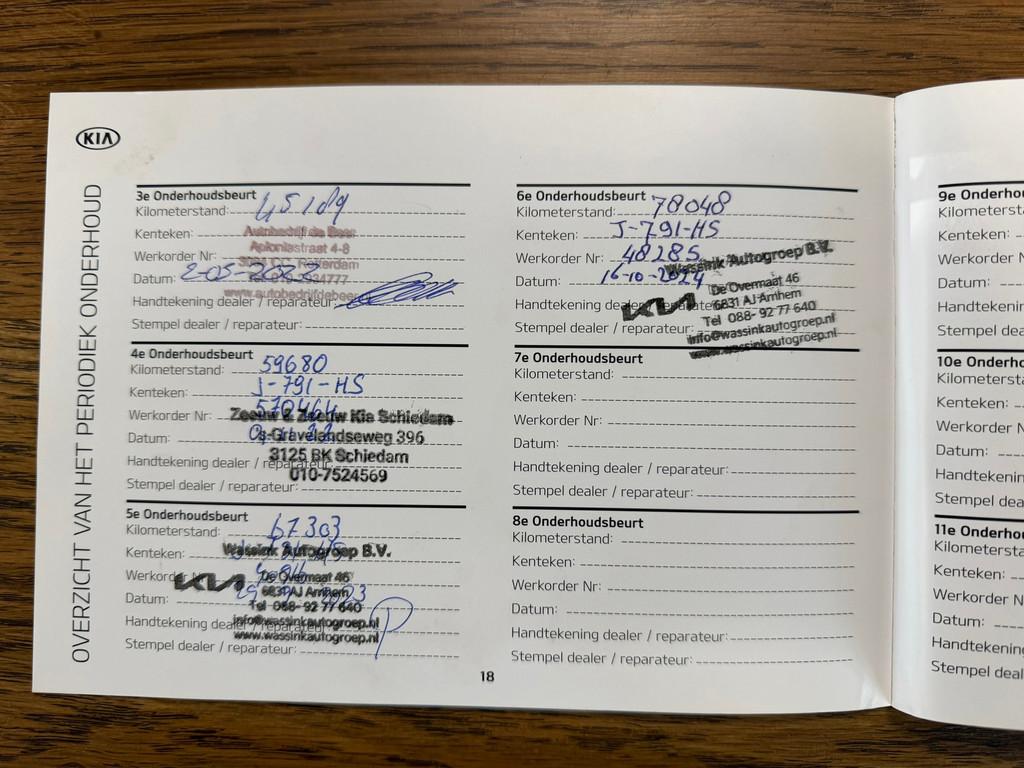 KIA
OVERZICHT VAN HET PERIODIEK ONDERHOUD
3e Onderhoudsbeurt
Kilometerstand: 45189
Kenteken:
Autobedrijf de Beer
Aploniastraat 4-8
Werkorder Nr:
Rotterdam
Datum: 2-05-
Handtekening dealer / reparateur:
Stempel dealer / reparateur:
4e Onderhoudsbeurt
Kilometerstand: 59680
Kenteken: J-791-HS
Werkorder Nr: 570464
Zeeuw & Zeeuw Kia Schiedam
's-Gravelandseweg 396
Datum:
3125 BK Schiedam
Handtekening dealer / reparateur:
010-7524569
Stempel dealer / reparateur:
5e Onderhoudsbeurt
Kilometerstand: 67303
Kenteken:
Wassink Autogroep B.V.
Werkorder Nr:
KIA
De Overmaat 46
6831 AJ Arnhem
Datum:
Tel 088- 92 77 640
Handtekening dealer / reparateur:
info@wassinkautogroep.nl
www.wassinkautogroep.nl
Stempel dealer / reparateur:
6e Onderhoudsbeurt
Kilometerstand: 78048
Kenteken: J-791-HS
Werkorder Nr: 48285
Datum: 16-10-2024
Wassink Autogroep B.V.
KIA
De Overmaat 46
Handtekening dealer / reparateur:
6831 AJ Arnhem
Tel 088- 92 77 640
Stempel dealer / reparateur:
info@wassinkautogroep.nl
www.wassinkautogroep.nl
7e Onderhoudsbeurt
Kilometerstand:
Kenteken:
Werkorder Nr:
Datum:
Handtekening dealer / reparateur:
Stempel dealer / reparateur:
8e Onderhoudsbeurt
Kilometerstand:
Kenteken:
Werkorder Nr:
Datum:
Handtekening dealer / reparateur:
Stempel dealer / reparateur:
18
9e Onderhou
Kilometersta
Kenteken:
Werkorder N
Datum:
Handtekenin
Stempel dea
10e Onderh
Kilometersta
Kenteken:
Werkorder N
Datum:
Handtekenin
Stempel deal
11e Onderho
Kilometersta
Kenteken:
Werkorder N
Datum:
Handtekening
Stempel deal